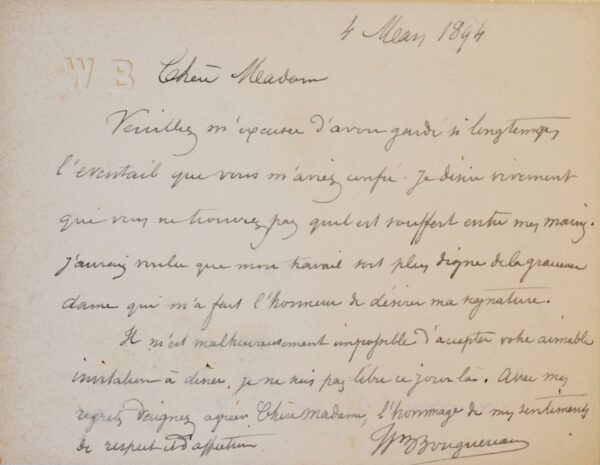 4 Mars 1894
W B Chère Madame
Veuillez m'excuser d'avoir gardé si longtemps
l'éventail que vous m'aviez confié. Je désire vivement
que vous ne trouviez pas qu'il ait souffert entre mes mains.
J'aurais voulu que mon travail soit plus digne de la gracieuse
dame qui m'a fait l'honneur de désirer ma signature.
Il m'est malheureusement impossible d'accepter votre aimable
invitation à diner, je ne suis pas libre ce jour là. Avec mes
regrets daignez agréer Chère Madame, l'hommage de mes sentiments
de respect et d'affection
Wm Bouguereau